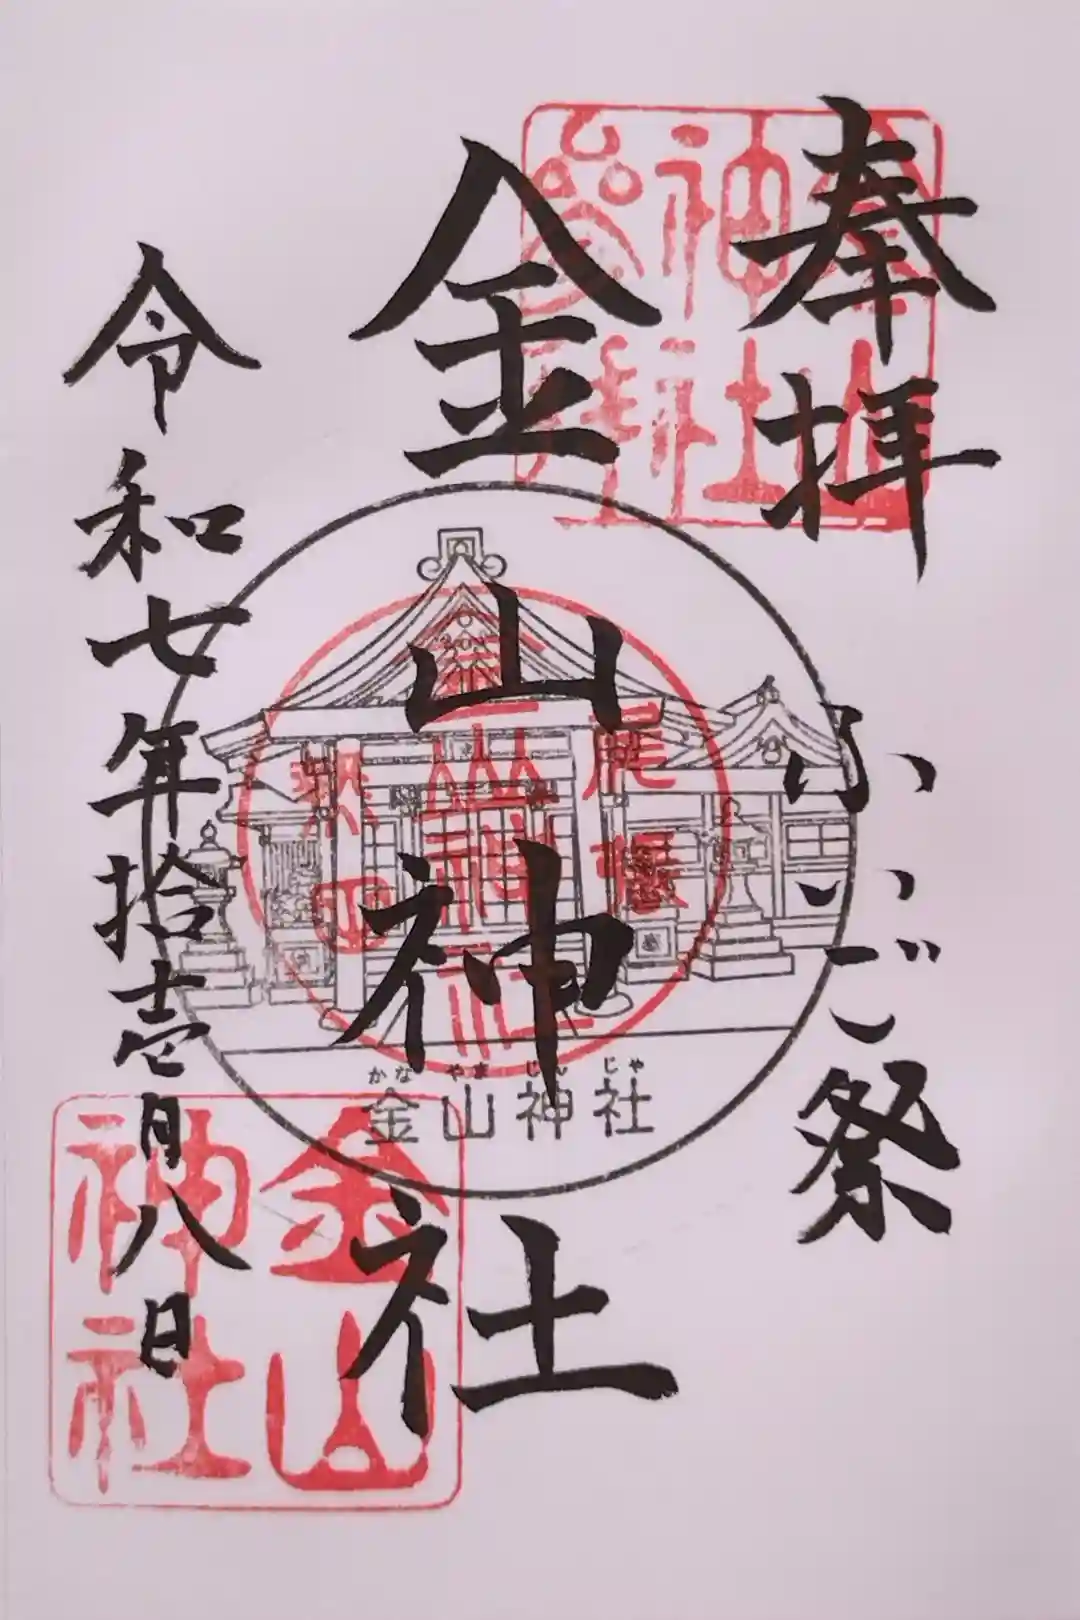 奉拝
ふいご祭
金山神社
令和七年拾壱月八日
かな やま じん じゃ
金山神社
尾張
金山神社
熱田
金山
神社
金山
神社